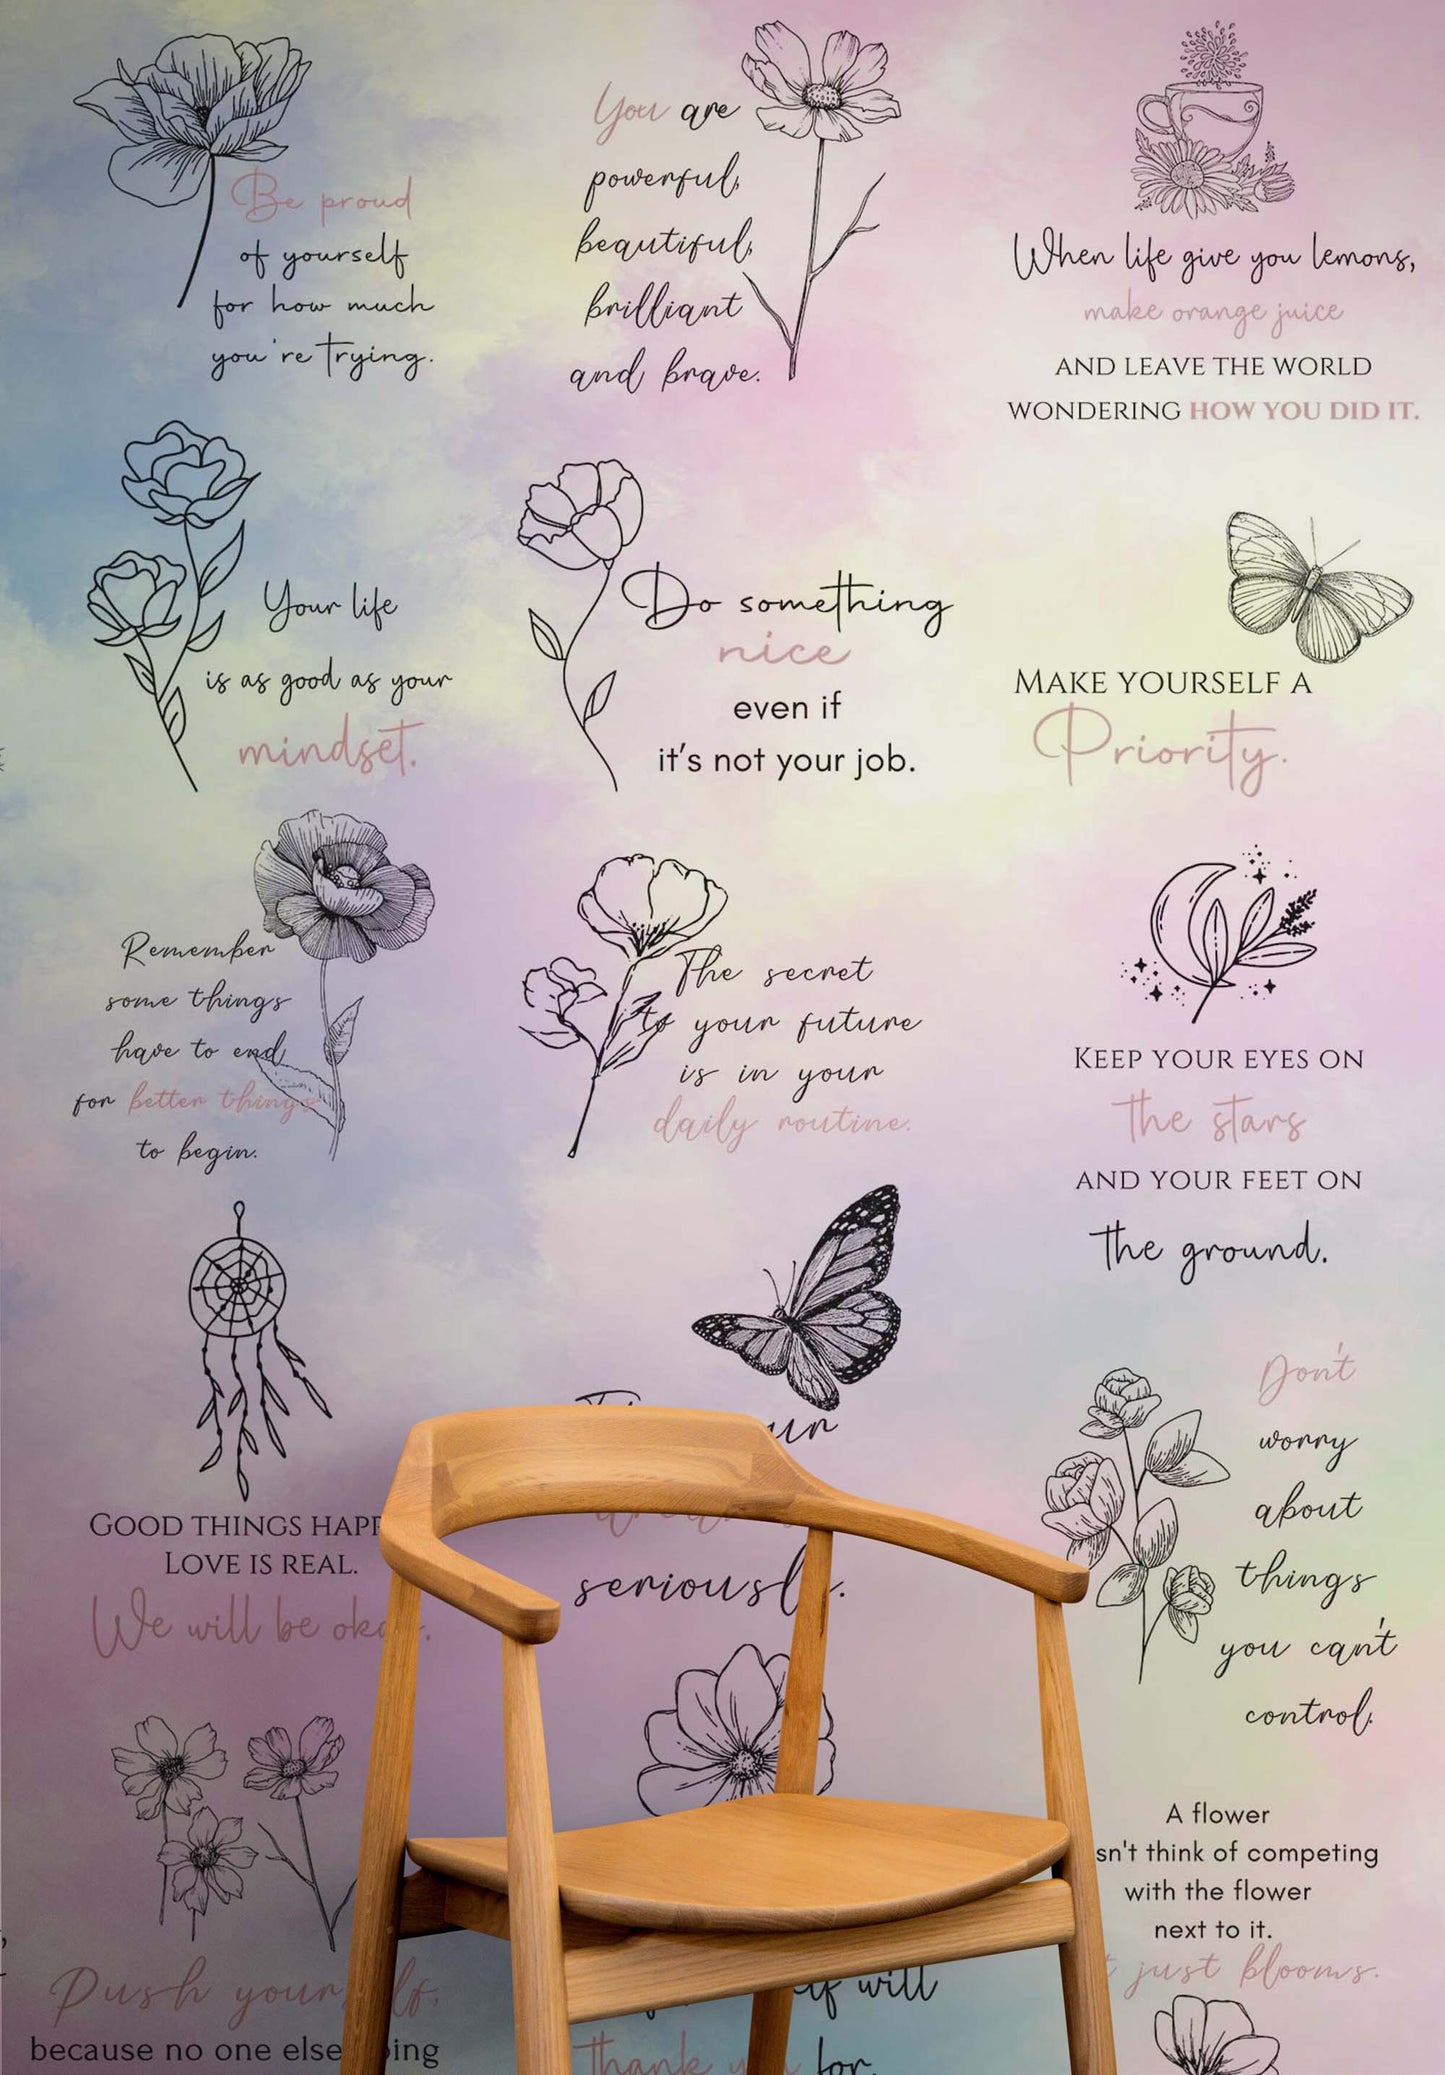 Be proud
of yourself
for how much
you're trying.
You are
powerful,
beautiful,
brilliant
and brave.
When life give you lemons,
make orange juice
AND LEAVE THE WORLD
WONDERING HOW YOU DID IT.
Your life
is as good as your
mindset.
Do something
nice
even if
it's not your job.
MAKE YOURSELF A
Priority.
Remember
some things
have to end
for better things
to begin.
The secret
to your future
is in your
daily routine.
KEEP YOUR EYES ON
the stars
AND YOUR FEET ON
the ground.
GOOD THINGS HAPP
LOVE IS REAL.
We will be
seriously.
Don't
worry
about
things
you can't
control.
A flower
sn't think of competing
with the flower
next to it.
just blooms.
Push
because no one else
will
thank for